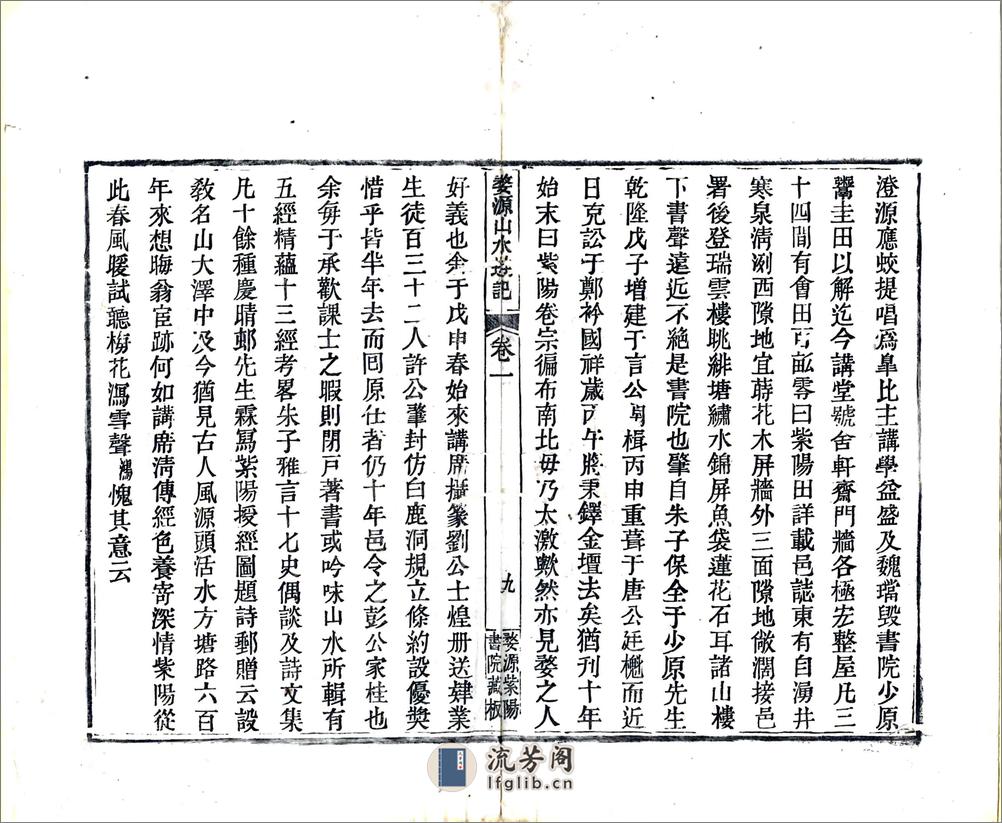 澄源應蛟提唱爲皐比主講學益盛及魏璫毀書院少原
鬻圭田以解迄今講堂號舍軒齋門牆各極宏整屋凡三
十四間有會田百畝零曰紫陽田詳載邑誌東有自湧井
寒泉清冽西隙地宜蒔花木屏牆外三面隙地敞濶接邑
署後登瑞雲樓眺緋塘繡水錦屏魚袋蓮花石耳諸山樓
下書聲遠近不絕是書院也肇自朱子保全于少原先生
乾隆戊子增建于言公朝楫丙申重葺于唐公廷樾而近
日克訟于鄭衿國祥歲丙午將秉鐸金壇法矣猶刊十年
始末曰紫陽卷宗徧布南北毋乃太激歟然亦見婺之人
婺源山水遊記
卷一
九
婺源紫陽
書院藏板
好義也余于戊申春始來講席攝篆劉公士煌册送肄業
生徒百三十二人許公肇封仿白鹿洞規立條約設優奬
惜乎皆半年去而囘原任者仍十年邑令之彭公家桂也
余每于承歡課士之暇則閉戸著書或吟味山水所輯有
五經精蘊十三經考畧朱子雅言十七史偶談及詩文集
凡十餘種慶晴邨先生霖寫紫陽授經圖題詩郵贈云設
敎名山大澤中及今猶見古人風源頭活水方塘路六百
年來想晦翁宦跡何如講席清傳經色養寄深情紫陽從
此春風暖試聽梅花瀉雪聲鴻愧其意云
流芳阁
lfglib.cn